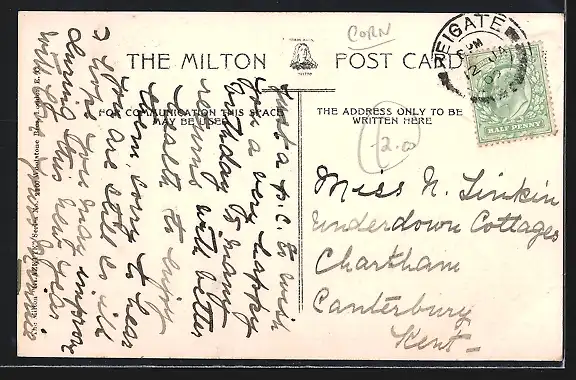 CORN
THE MILTON POST CARD
REIGATE
PM
12 JA
HALF PENNY
FOR COMMUNICATION THIS SPACE
MAY BE USED
THE ADDRESS ONLY TO BE
WRITTEN HERE
12.0
Just a p.c. to wish
you a very happy
birthday & many
returns with better
health to enjoy
them, sorry to hear
you are still so ill
I hope you may improve
during this next year
with love from
Miss N. Linkin
Underdown Cottages
Chartham
Canterbury
Kent